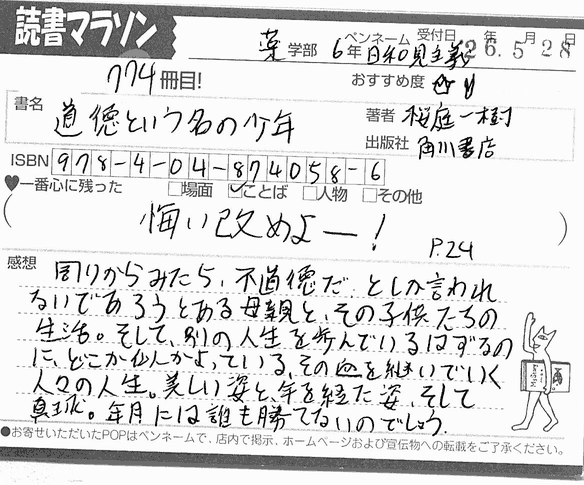 読書マラソン
薬 学部 6年 ペンネーム 日和見主義 受付日 26年5月28日
774冊目! おすすめ度
書名 道徳という名の少年
著者 桜庭一樹
出版社 角川書店
ISBN 978-4-04-874058-6
♥一番心に残った □場面 ☑ことば □人物 □その他
( 悔い改めよー! )
P.24
感想 周りからみたら、不道徳だ としか言われ
ないであろうとある母親と、その子供たちの
生活。そして、別の人生を歩んでいるはずなの
に、どこか似かよっている、その血を継いでいく
人々の人生。美しい姿と、年を経た姿、そして
真珠。年月には誰も勝てないのでしょう。
●お寄せいただいたPOPはペンネームで、店内で掲示、ホームページおよび宣伝物への転載をご了承ください。